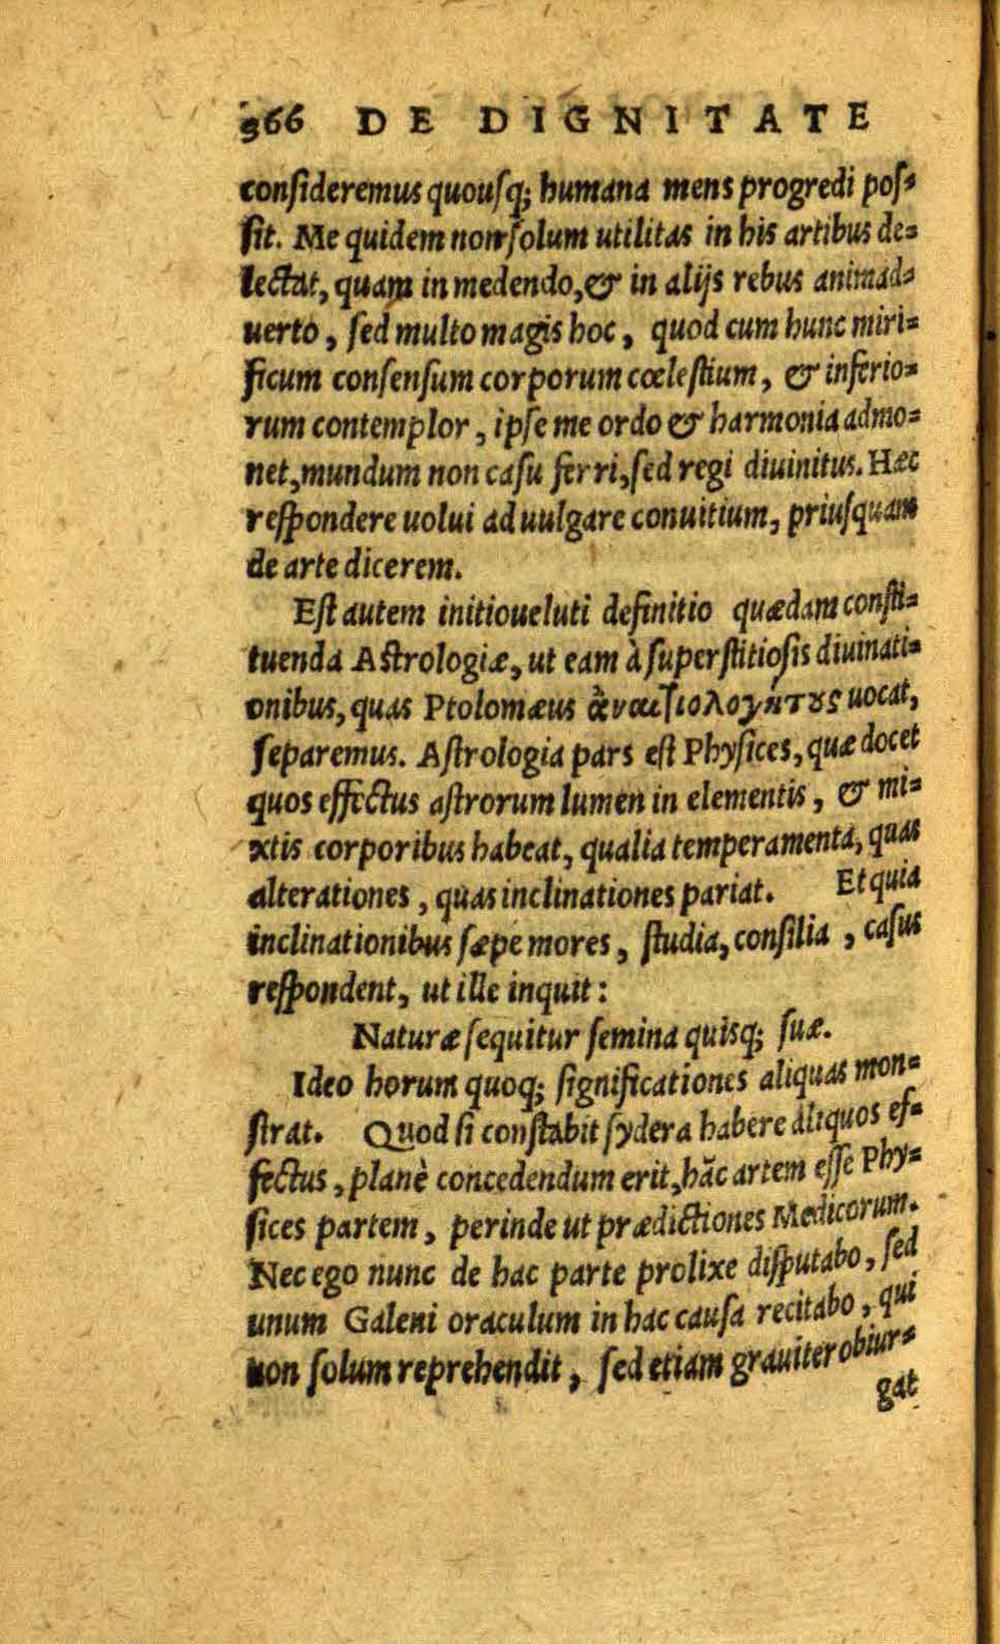 366 DE DIGNITATE
conſideremus quouſq; humana mens progredi poſ=
ſit. Me quidem non ſolum utilitas in his artibus de=
lectat, quam in medendo, & in alijs rebus animad=
uerto, ſed multo magis hoc, quod cum hunc miri=
ficum conſenſum corporum cœleſtium, & inferio=
rum contemplor, ipſe me ordo & harmonia admo=
net, mundum non caſu ferri, ſed regi diuinitus. Hæc
reſpondere uolui ad uulgare conuitium, priuſquam
de arte dicerem.
Eſt autem initio ueluti definitio quædam conſti=
tuenda Aſtrologiæ, ut eam à ſuperſtitioſis diuinati=
onibus, quas Ptolomæus ἀναιτιολογήτους uocat,
ſeparemus. Aſtrologia pars eſt Phyſices, quæ docet
quos effectus aſtrorum lumen in elementis, & mi=
xtis corporibus habeat, qualia temperamenta, quas
alterationes, quas inclinationes pariat. Et quia
inclinationibus ſæpe mores, ſtudia, conſilia, caſus
reſpondent, ut ille inquit:
Naturæ ſequitur ſemina quisq; ſuæ.
Ideo horum quoq; ſignificationes aliquas mon=
ſtrat. Quod ſi conſtabit ſydera habere aliquos ef=
fectus, planè concedendum erit, hāc artem eſſe Phy=
ſices partem, perinde ut prædictiones Medicorum.
Nec ego nunc de hac parte prolixe diſputabo, ſed
unum Galeni oraculum in hac cauſa recitabo, qui
non ſolum reprehendit, ſed etiam grauiter obiur=
gat